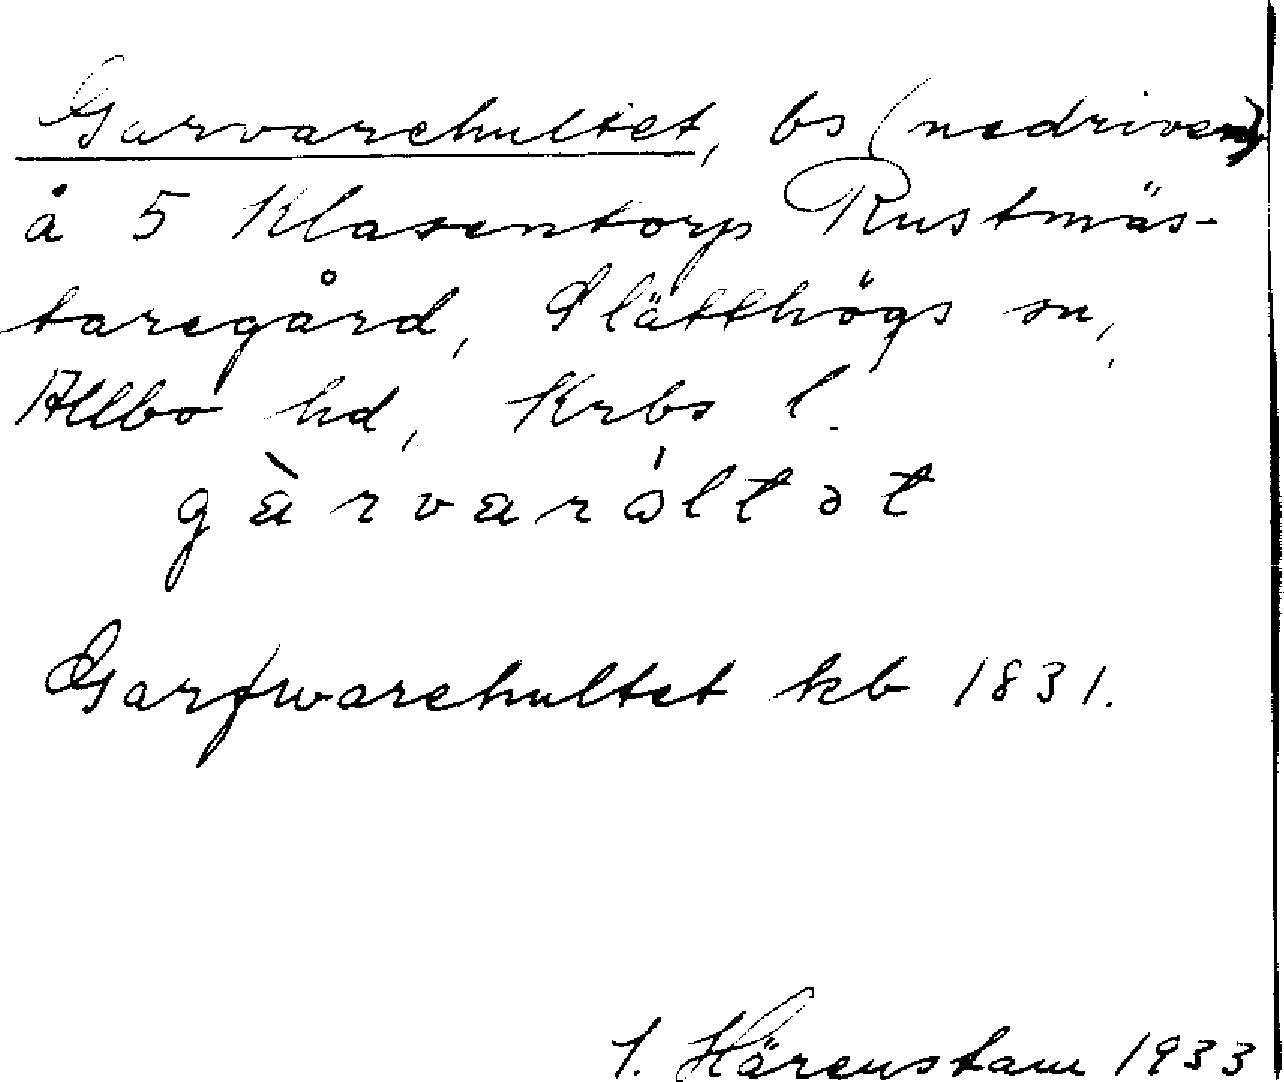 Garvarehultet, bs (nedriven)
å 5 Klasentorp Rustmäs-
taregård, Slätthögs sn,
Allbo hd, Krbs l.
gàrvaróltət
Garfwarehultet kb 1831.
I. Härenstam 1933